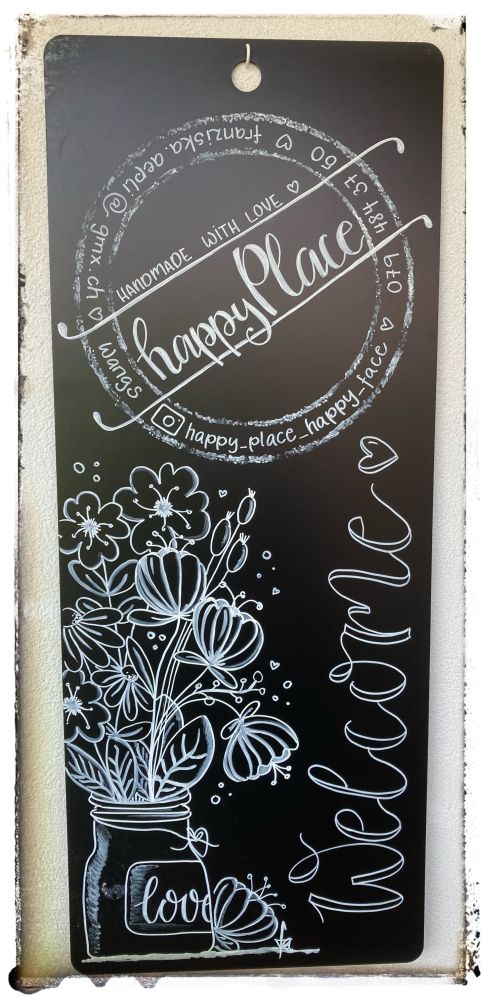 franziska.aepli@gmx.ch ♡ Wangs
079 484 37 60 ♡
HANDMADE WITH LOVE ♡
happy Place
happy_place_happy_face ♡
Welcome ♡
love